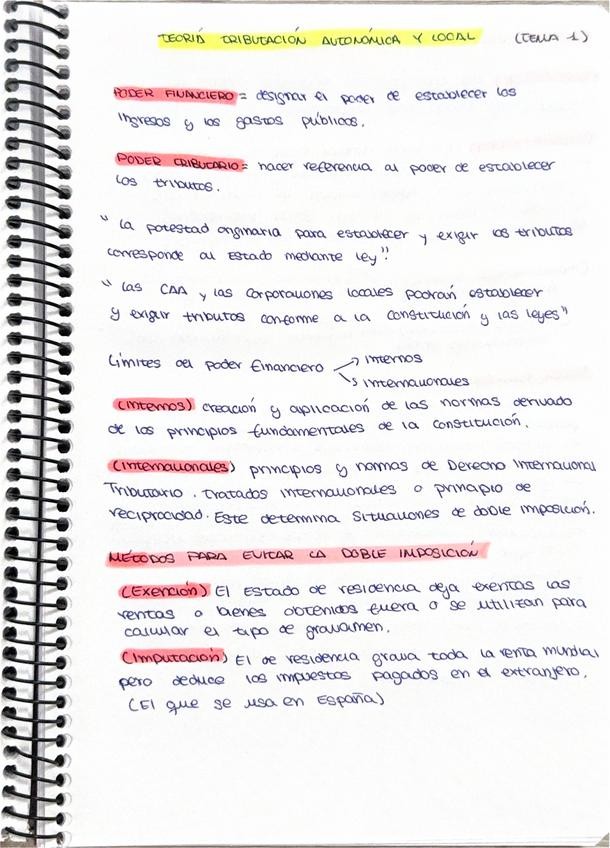 TEORÍA TRIBUTACIÓN AUTONÓMICA Y LOCAL (TEMA 1)
PODER FINANCIERO = designar el poder de establecer los
ingresos y los gastos públicos.
PODER TRIBUTARIO = hacer referencia al poder de establecer
los tributos.
" La potestad originaria para establecer y exigir los tributos
corresponde al Estado mediante ley"
" Las CAA y las corporaciones locales podrán establecer
y exigir tributos conforme a la constitución y las leyes"
Límites del poder financiero → internos
→ internacionales
(Internos) creación y aplicación de las normas derivado
de los principios fundamentales de la constitución.
(Internacionales) principios y normas de Derecho Internacional
Tributario. Tratados internacionales o principio de
reciprocidad. Este determina situaciones de doble imposición.
MÉTODOS PARA EVITAR LA DOBLE IMPOSICIÓN
(Exención) El Estado de residencia deja exentas las
rentas o bienes obtenidos fuera o se utilizan para
calcular el tipo de gravamen.
(Imputación) El de residencia grava toda la renta mundial
pero deduce los impuestos pagados en el extranjero.
(El que se usa en España)